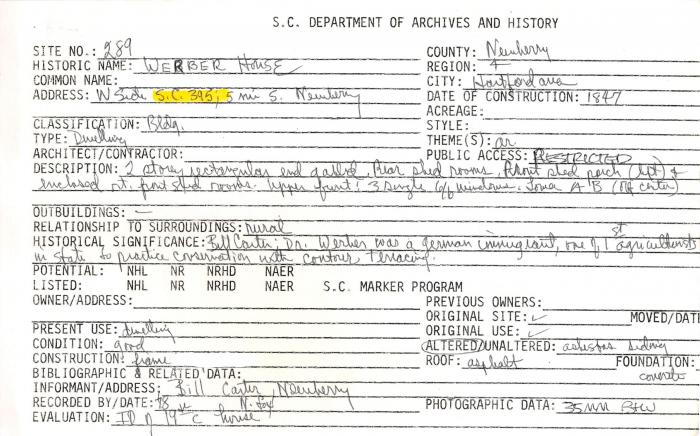 S.C. DEPARTMENT OF ARCHIVES AND HISTORY
SITE NO.: 289
COUNTY: Newberry
HISTORIC NAME: WERBER HOUSE
REGION: 4
COMMON NAME:
CITY: Hartford area
ADDRESS: W Side S.C. 395, 5 mi S. Newberry
DATE OF CONSTRUCTION: 1847
ACREAGE:
CLASSIFICATION: Bldg.
STYLE:
TYPE: Dwelling
THEME(S): ar
ARCHITECT/CONTRACTOR:
PUBLIC ACCESS: RESTRICTED
DESCRIPTION: 2 story rectangular end gabled, Rear shed rooms, front shed porch (left) &
enclosed rt. front shed rooms. Upper front: 3 single 6/6 windows. Lower A B (off center)
OUTBUILDINGS: —
RELATIONSHIP TO SURROUNDINGS: rural
HISTORICAL SIGNIFICANCE: Bill Carter: Dr. Werber was a German immigrant, one of 1st agriculturists
in state to practice conservation with contour terracing.
POTENTIAL: NHL NR NRHD NAER
LISTED: NHL NR NRHD NAER S.C. MARKER PROGRAM
OWNER/ADDRESS:
PREVIOUS OWNERS:
ORIGINAL SITE: ✓ MOVED/DATE
PRESENT USE: dwelling
ORIGINAL USE: ✓
CONDITION: good
ALTERED/UNALTERED: asbestos siding
CONSTRUCTION: frame
ROOF: asphalt FOUNDATION:
concrete
BIBLIOGRAPHIC & RELATED DATA:
INFORMANT/ADDRESS: Bill Carter, Newberry
RECORDED BY/DATE: N. Fox
PHOTOGRAPHIC DATA: 35MM B+W
EVALUATION: ID of 19th C house